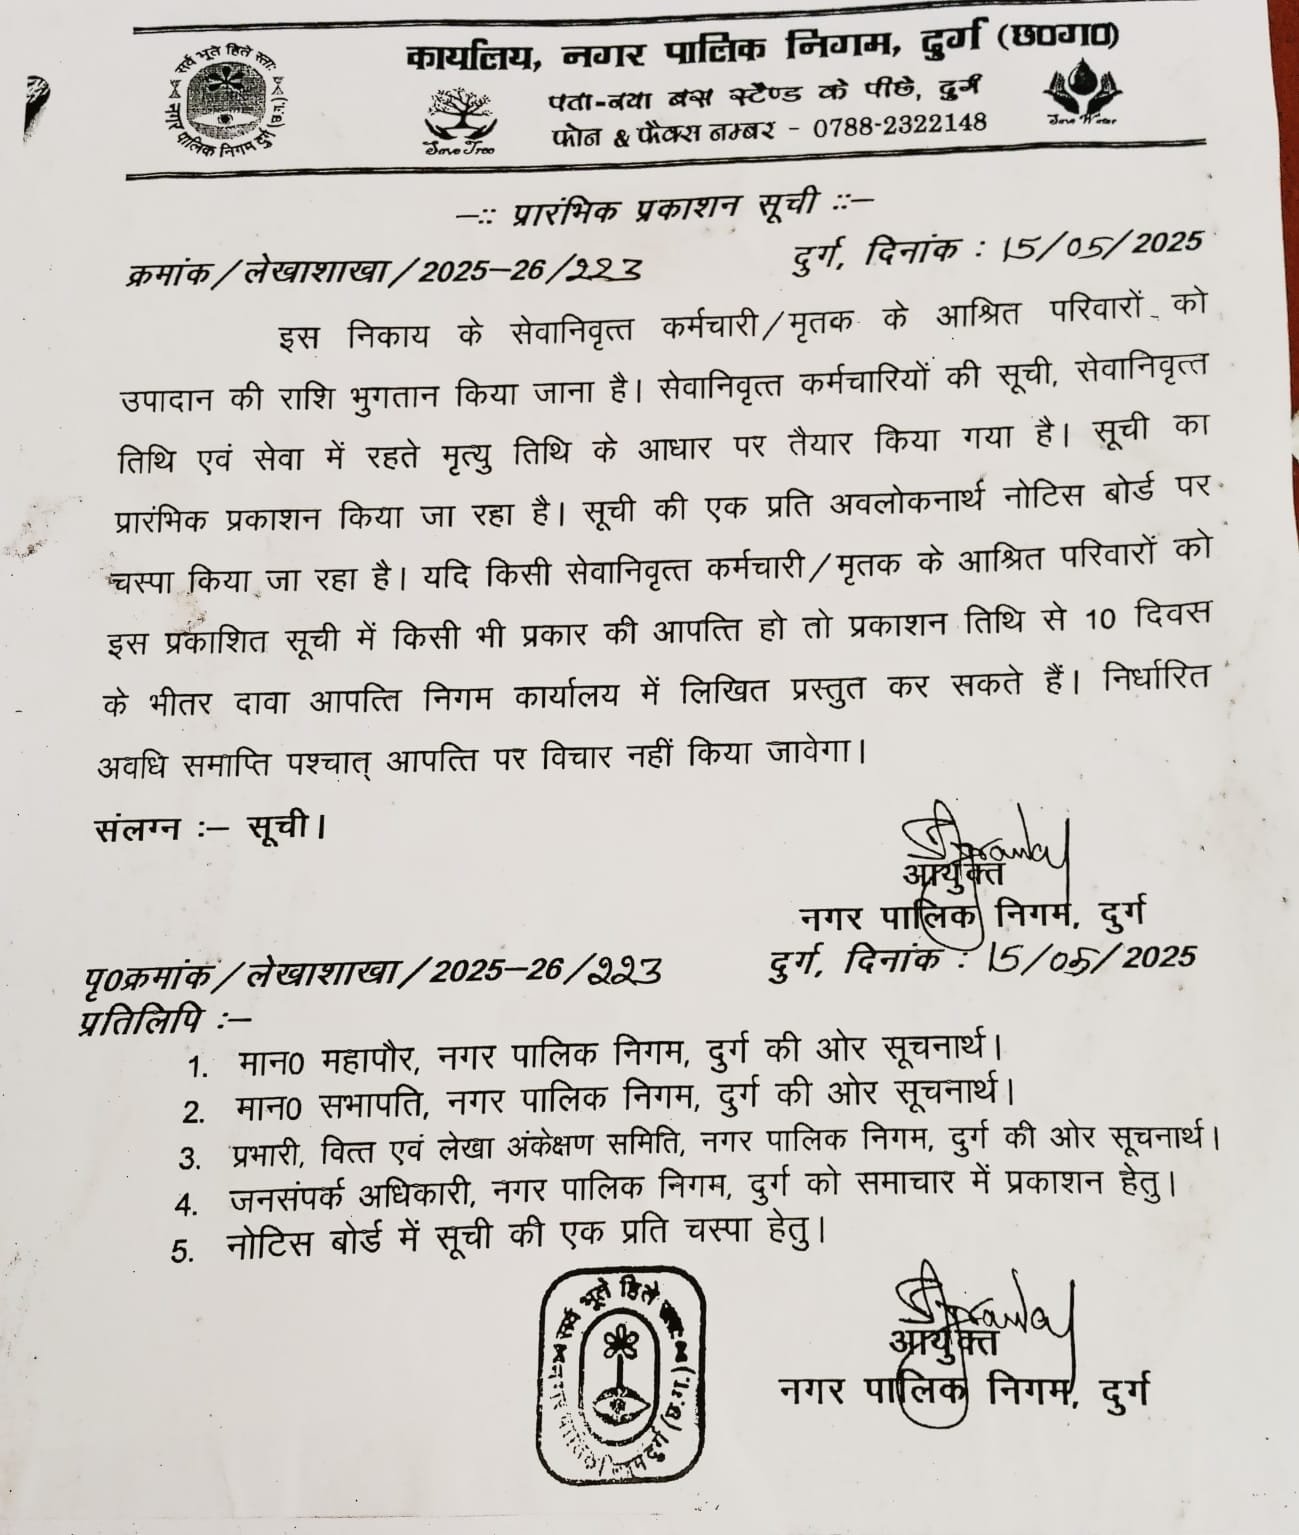 कार्यालय, नगर पालिक निगम, दुर्ग (छ०ग०)
सर्व भूते हिते रताः
नगर पालिक निगम दुर्ग (छ.ग.)
पता-नया बस स्टैण्ड के पीछे, दुर्ग
फोन & फैक्स नम्बर - 0788-2322148
Save Tree
Save Water
—:: प्रारंभिक प्रकाशन सूची ::—
क्रमांक/लेखाशाखा/2025-26/223
दुर्ग, दिनांक : 15/05/2025
इस निकाय के सेवानिवृत्त कर्मचारी/मृतक के आश्रित परिवारों को
उपादान की राशि भुगतान किया जाना है। सेवानिवृत्त कर्मचारियों की सूची, सेवानिवृत्त
तिथि एवं सेवा में रहते मृत्यु तिथि के आधार पर तैयार किया गया है। सूची का
प्रारंभिक प्रकाशन किया जा रहा है। सूची की एक प्रति अवलोकनार्थ नोटिस बोर्ड पर
चस्पा किया जा रहा है। यदि किसी सेवानिवृत्त कर्मचारी/मृतक के आश्रित परिवारों को
इस प्रकाशित सूची में किसी भी प्रकार की आपत्ति हो तो प्रकाशन तिथि से 10 दिवस
के भीतर दावा आपत्ति निगम कार्यालय में लिखित प्रस्तुत कर सकते हैं। निर्धारित
अवधि समाप्ति पश्चात् आपत्ति पर विचार नहीं किया जावेगा।
संलग्न :— सूची।
आयुक्त
नगर पालिक निगम, दुर्ग
पृ०क्रमांक/लेखाशाखा/2025-26/223
दुर्ग, दिनांक : 15/05/2025
प्रतिलिपि :—
1. मान० महापौर, नगर पालिक निगम, दुर्ग की ओर सूचनार्थ।
2. मान० सभापति, नगर पालिक निगम, दुर्ग की ओर सूचनार्थ।
3. प्रभारी, वित्त एवं लेखा अंकेक्षण समिति, नगर पालिक निगम, दुर्ग की ओर सूचनार्थ।
4. जनसंपर्क अधिकारी, नगर पालिक निगम, दुर्ग को समाचार में प्रकाशन हेतु।
5. नोटिस बोर्ड में सूची की एक प्रति चस्पा हेतु।
सर्व भूते हिते
दुर्ग (छ.ग.)
आयुक्त
नगर पालिक निगम, दुर्ग